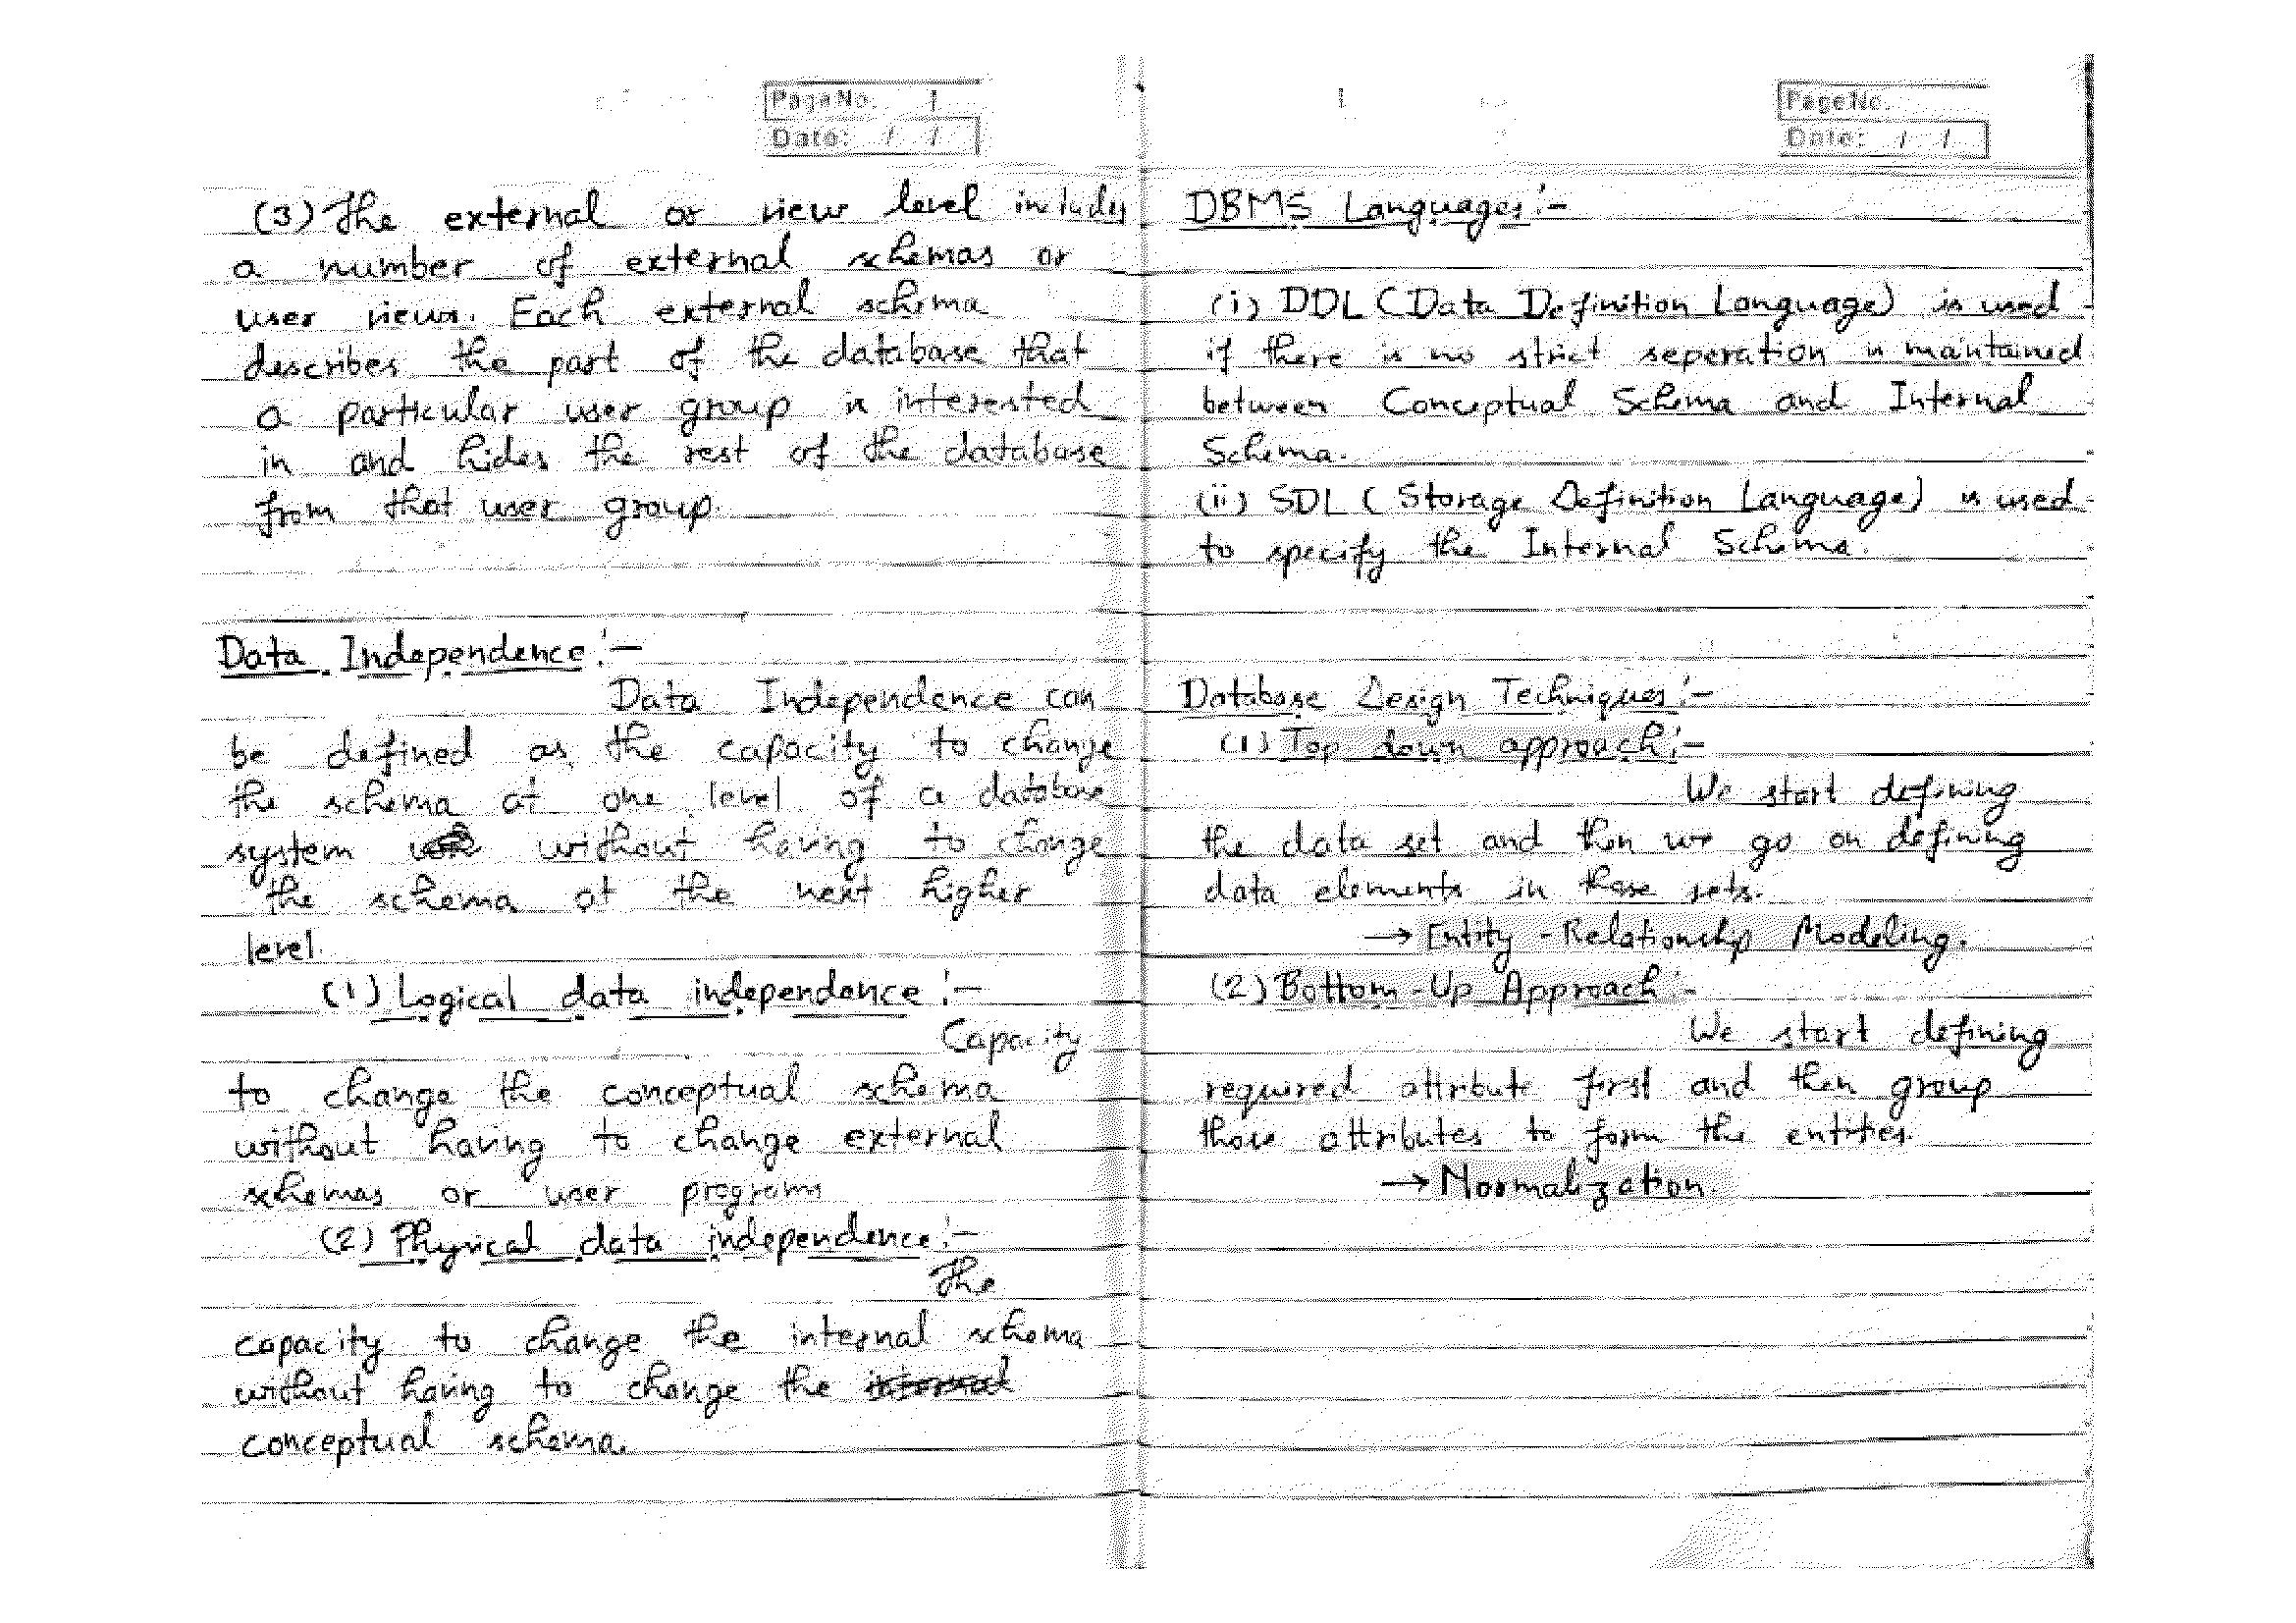 Page No. 1
Date: / /
(3) The external or view level includes
a number of external schemas or
user views. Each external schema
describes the part of the database that
a particular user group is interested
in and hides the rest of the database
from that user group.
Data Independence :-
Data Independence can
be defined as the capacity to change
the schema at one level of a database
system without having to change
the schema at the next higher
level.
(1) Logical data independence :-
Capacity
to change the conceptual schema
without having to change external
schemas or user programs
(2) Physical data independence :-
The
capacity to change the internal schema
without having to change the internal
conceptual schema.
Page No.
Date: / /
DBMS Languages :-
(i) DDL (Data Definition Language) is used
if there is no strict seperation is maintained
between Conceptual Schema and Internal
Schema.
(ii) SDL (Storage Definition Language) is used
to specify the Internal Schema.
Database Design Techniques :-
(1) Top down approach :-
We start defining
the data set and then we go on defining
data elements in those sets.
→ Entity - Relationship Modeling.
(2) Bottom - Up Approach :-
We start defining
required attribute first and then group
those attributes to form the entities.
→ Normalization.